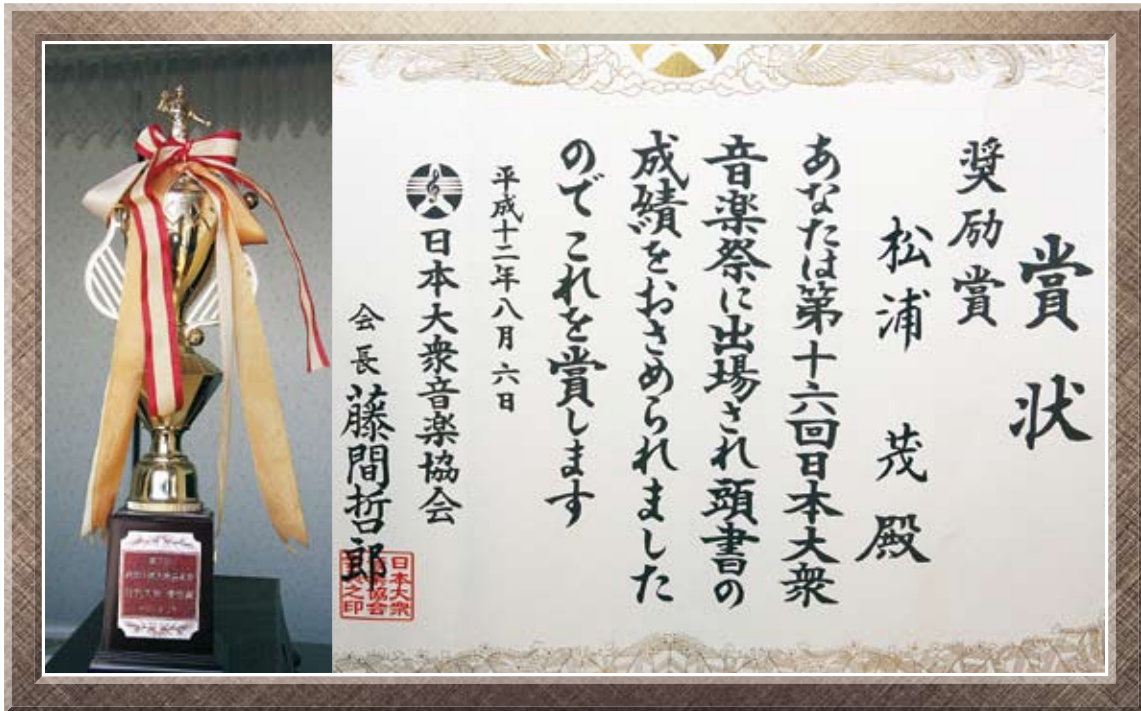 賞状
奨励賞
松浦 茂 殿
あなたは第十六回日本大衆
音楽祭に出場され頭書の
成績をおさめられました
のでこれを賞します
平成十二年八月六日
日本大衆音楽協会
会長 藤間哲郎
日本大衆